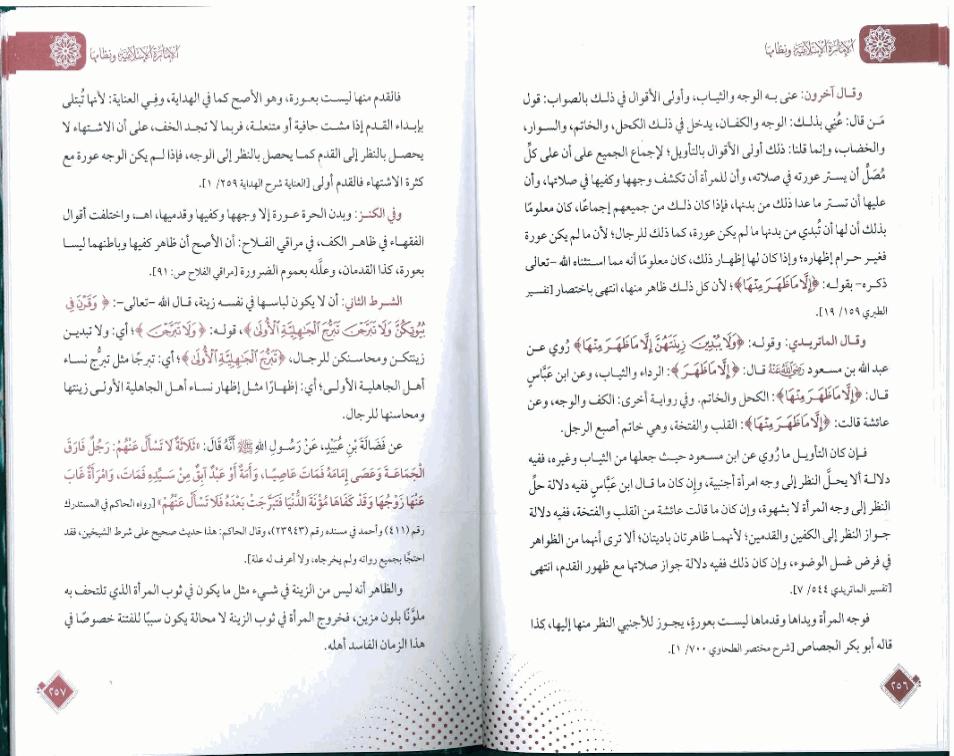 الإمارة الإسلامية ونظامها
وقال آخرون: عنى به الوجه والثياب، وأولى الأقوال في ذلك بالصواب: قول
مَن قال: عُنِي بذلك: الوجه والكفان، يدخل في ذلك الكحل، والخاتم، والسوار،
والخضاب، وإنما قلنا: ذلك أولى الأقوال بالتأويل؛ لإجماع الجميع على أن على كلِّ
مُصَلٍّ أن يستر عورته في صلاته، وأن للمرأة أن تكشف وجهها وكفيها في صلاتها، وأن
عليها أن تستر ما عدا ذلك من بدنها، فإذا كان ذلك من جميعهم إجماعًا، كان معلومًا
بذلك أن لها أن تُبدي من بدنها ما لم يكن عورة، كما ذلك للرجال؛ لأن ما لم يكن عورة
فغير حرام إظهاره؛ وإذا كان لها إظهار ذلك، كان معلومًا أنه مما استثناه الله -تعالى
ذكره- بقوله: ﴿إِلَّا مَا ظَهَرَ مِنْهَا﴾؛ لأن كل ذلك ظاهر منها، انتهى باختصار [تفسير
الطبري ١٥٩/ ١٩].
وقال الماتريدي: وقوله: ﴿وَلَا يُبْدِينَ زِينَتَهُنَّ إِلَّا مَا ظَهَرَ مِنْهَا﴾ رُوي عن
عبد الله بن مسعود رَضِيَ اللهُ عَنْهُ قال: ﴿إِلَّا مَا ظَهَرَ﴾: الرداء والثياب، وعن ابن عبَّاس
قال: ﴿إِلَّا مَا ظَهَرَ مِنْهَا﴾: الكحل والخاتم. وفي رواية أخرى: الكف والوجه، وعن
عائشة قالت: ﴿إِلَّا مَا ظَهَرَ مِنْهَا﴾: القلب والفتخة، وهي خاتم أصبع الرجل.
فإن كان التأويل ما رُوي عن ابن مسعود حيث جعلها من الثياب وغيره، ففيه
دلالة ألا يحلَّ النظر إلى وجه امرأة أجنبية، وإن كان ما قال ابن عبَّاس ففيه دلالة حلِّ
النظر إلى وجه المرأة لا بشهوة، وإن كان ما قالت عائشة من القلب والفتخة، ففيه دلالة
جواز النظر إلى الكفين والقدمين؛ لأنهما ظاهرتان باديتان؛ ألا ترى أنهما من الظواهر
في فرض غسل الوضوء، وإن كان ذلك ففيه دلالة جواز صلاتها مع ظهور القدم، انتهى
[تفسير الماتريدي ٥٤٤/ ٧].
فوجه المرأة ويداها وقدماها ليست بعورةٍ، يجوز للأجنبي النظر منها إليها، كذا
قاله أبو بكر الجصاص [شرح مختصر الطحاوي ٧٠٠/ ١].
٢٥٦
الإمارة الإسلامية ونظامها
فالقدم منها ليست بعورة، وهو الأصح كما في الهداية، وفِي العناية: لأنها تُبتلى
بإبداء القدم إذا مشت حافية أو متنعلة، فربما لا تجد الخف، على أن الاشتهاء لا
يحصل بالنظر إلى القدم كما يحصل بالنظر إلى الوجه، فإذا لم يكن الوجه عورة مع
كثرة الاشتهاء فالقدم أولى [العناية شرح الهداية ٢٥٩/ ١].
وفي الكنز: وبدن الحرة عورة إلا وجهها وكفيها وقدميها، اهـ، واختلفت أقوال
الفقهاء في ظاهر الكف، في مراقي الفلاح: أن الأصح أن ظاهر كفيها وباطنهما ليسا
بعورة، كذا القدمان، وعلَّله بعموم الضرورة [مراقي الفلاح ص: ٩١].
الشرط الثاني: أن لا يكون لباسها في نفسه زينة، قال الله -تعالى-: ﴿وَقَرْنَ فِي
بُيُوتِكُنَّ وَلَا تَبَرَّجْنَ تَبَرُّجَ الْجَاهِلِيَّةِ الْأُولَى﴾، قوله: ﴿وَلَا تَبَرَّجْنَ﴾؛ أي: ولا تبدين
زينتكن ومحاسنكن للرجال، ﴿تَبَرُّجَ الْجَاهِلِيَّةِ الْأُولَى﴾؛ أي: تبرجًا مثل تبرُّج نساء
أهل الجاهلية الأولى؛ أي: إظهارًا مثل إظهار نساء أهل الجاهلية الأولى زينتها
ومحاسنها للرجال.
عن فَضَالَةَ بْنِ عُبَيْدٍ، عَنْ رَسُولِ اللهِ ﷺ أَنَّهُ قَالَ: «ثَلَاثَةٌ لَا تَسْأَلْ عَنْهُمْ: رَجُلٌ فَارَقَ
الْجَمَاعَةَ وَعَصَى إِمَامَهُ فَمَاتَ عَاصِيًا، وَأَمَةٌ أَوْ عَبْدٌ آبِقٌ مِنْ سَيِّدِهِ فَمَاتَ، وَامْرَأَةٌ غَابَ
عَنْهَا زَوْجُهَا وَقَدْ كَفَاهَا مُؤْنَةَ الدُّنْيَا فَتَبَرَّجَتْ بَعْدَهُ فَلَا تَسْأَلْ عَنْهُمْ» [رواه الحاكم في المستدرك
رقم (٤١١) وأحمد في مسنده رقم (٢٣٩٤٣)، وقال الحاكم: هذا حديث صحيح على شرط الشيخين، فقد
احتجَّا بجميع رواته ولم يخرجاه، ولا أعرف له علة].
والظاهر أنه ليس من الزينة في شيء مثل ما يكون في ثوب المرأة الذي تلتحف به
ملوَّنًا بلون مزين، فخروج المرأة في ثوب الزينة لا محالة يكون سببًا للفتنة خصوصًا في
هذا الزمان الفاسد أهله.
٢٥٧